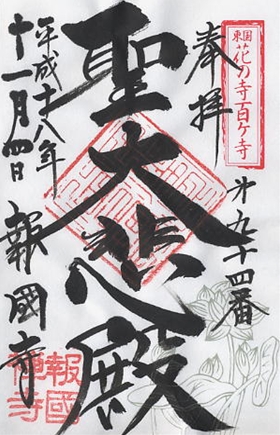 東国
花の寺百ヶ寺
奉拝
第九十四番
聖大悲殿
平成十八年
十一月四日
報國寺
報國
禅寺